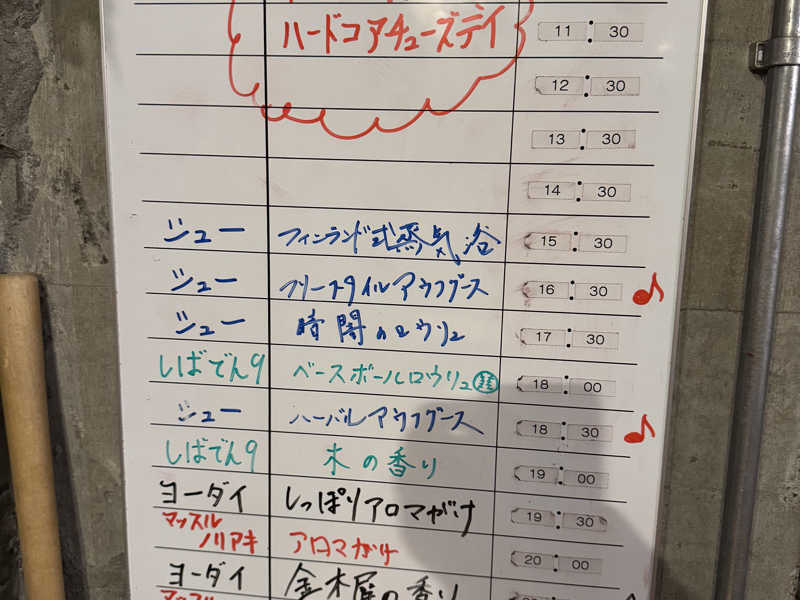 ハードコアチューズデイ 11:30
12:30
13:30
14:30
ジュー フィンランド式蒸気浴 15:30
ジュー フリースタイルアウフグース 16:30
ジュー 時間のロウリュ 17:30
しばでん9 ベースボールロウリュ 18:00
ジュー ハーバルアウフグース 18:30
しばでん9 木の香り 19:00
ヨーダイ しっぽりアロマがけ 19:30
マッスル
ノリアキ アロマがけ 20:00
ヨーダイ 金木犀の香り
マッスル